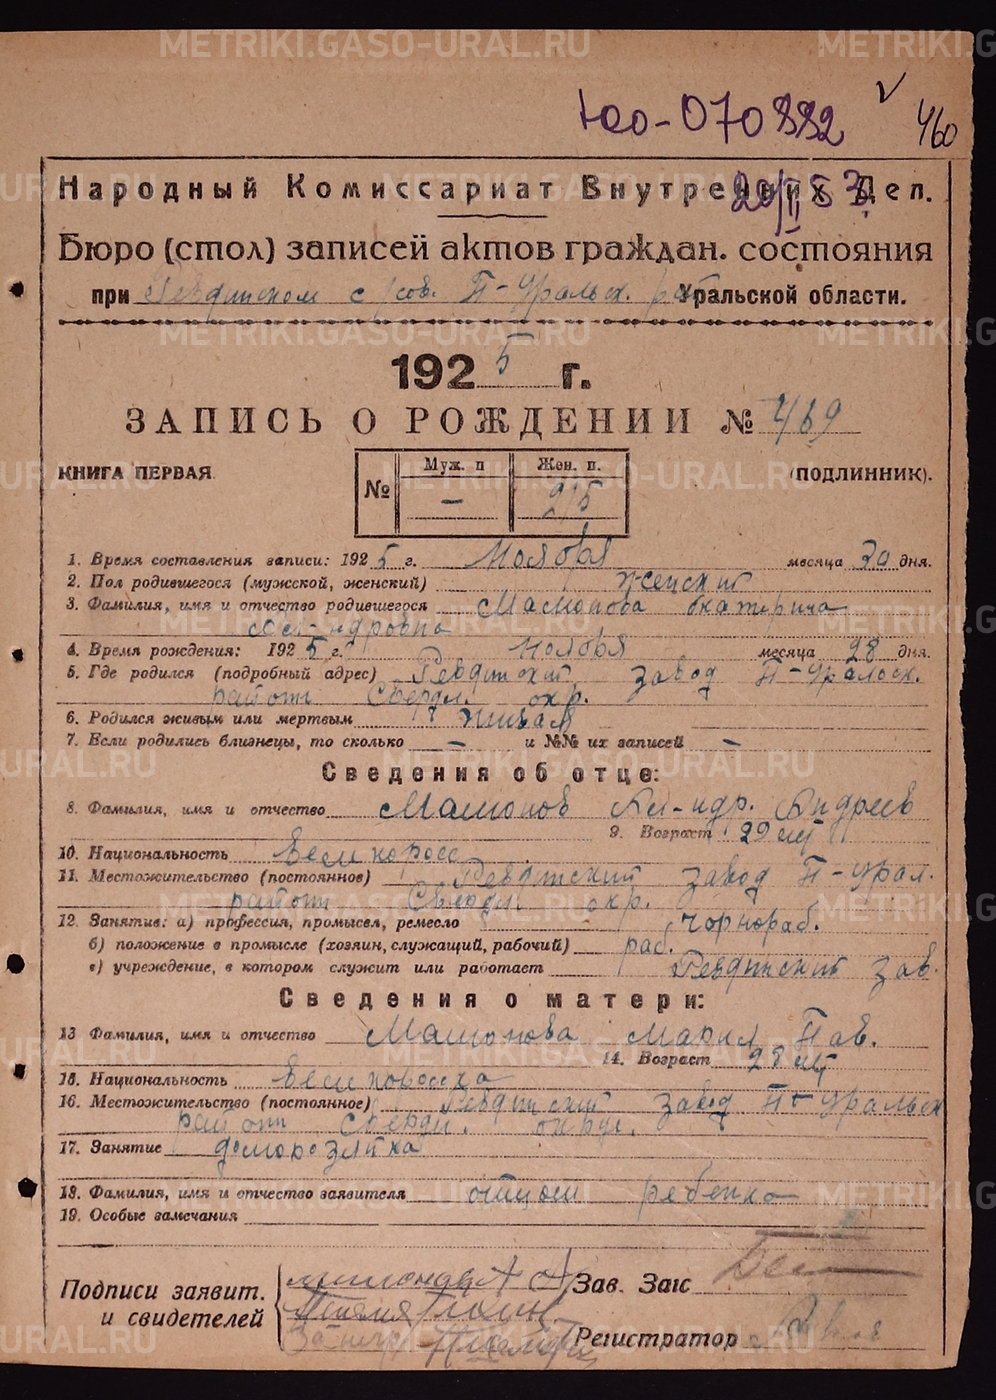 Юо-070882
460
Народный Комиссариат Внутренних Дел.
20/II 53.
Бюро (стол) записей актов граждан. состояния
при Ревдинском с/сов. П-Уральск. рай Уральской области.
1925 г.
ЗАПИСЬ О РОЖДЕНИИ № 469
КНИГА ПЕРВАЯ (ПОДЛИННИК).
№ Муж. п Жен. п.
— 215
1. Время составления записи: 1925 г. Ноября месяца 30 дня.
2. Пол родившегося (мужской, женский) женский
3. Фамилия, имя и отчество родившегося Мамонова Екатерина
4. Время рождения: 1925 г. Ноября месяца 28 дня.
5. Где родился (подробный адрес) Ревдинский завод П-Уральск.
района Свердл. окр.
6. Родился живым или мертвым живая
7. Если родились близнецы, то сколько — и №№ их записей —
Сведения об отце:
8. Фамилия, имя и отчество Мамонов Ал-ндр. Андреев
9. Возраст 29 лет
10. Национальность великоросс
11. Местожительство (постоянное) Ревдинский завод П-Урал.
района Свердл окр.
12. Занятие: а) профессия, промысел, ремесло чорнораб.
б) положение в промысле (хозяин, служащий, рабочий) раб.
в) учреждение, в котором служит или работает Ревдинский зав.
Сведения о матери:
13 Фамилия, имя и отчество Мамонова Мария Пав.
14. Возраст 28 лет
15. Национальность великоросска
16. Местожительство (постоянное) Ревдинский завод П-Уральск
района Свердл. округ.
17. Занятие домохозяйка
18. Фамилия, имя и отчество заявителя отцом ребенка
19. Особые замечания
Подписи заявит. и свидетелей
Зав. Загс
Регистратор
METRIKI.GASO-URAL.RU